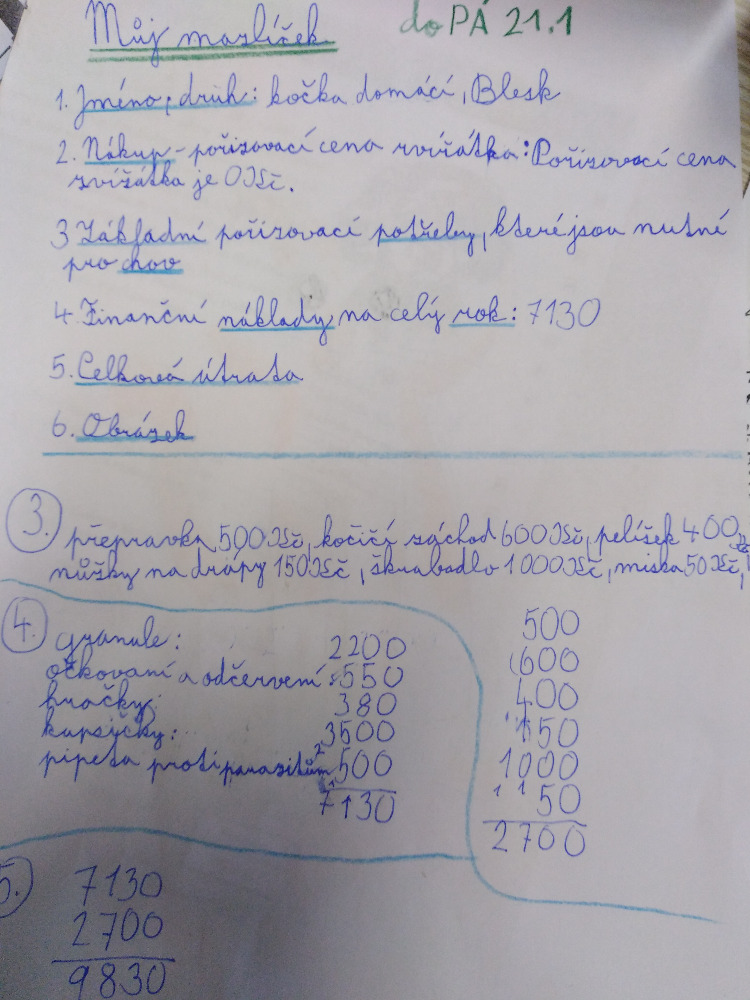 Můj mazlíček
do PÁ 21.1
1. Jméno, druh: kočka domácí, Blesk
2. Nákup - pořizovací cena zvířátka: Pořizovací cena
zvířátka je 0 Kč.
3 Základní pořizovací potřeby, které jsou nutné
pro chov
4. Finanční náklady na celý rok: 7130
5. Celková útrata
6. Obrázek
3. přepravka 500 Kč, kočičí záchod 600 Kč, pelíšek 400
nůžky na drápy 150 Kč, škrabadlo 1000 Kč, miska 50 Kč,
4. granule: 2200
očkovaní a odčervení: 550
hračky: 380
kapsičky: 3500
pipeta proti parazitům 500
7130
500
600
400
150
1000
50
2700
5. 7130
2700
9830